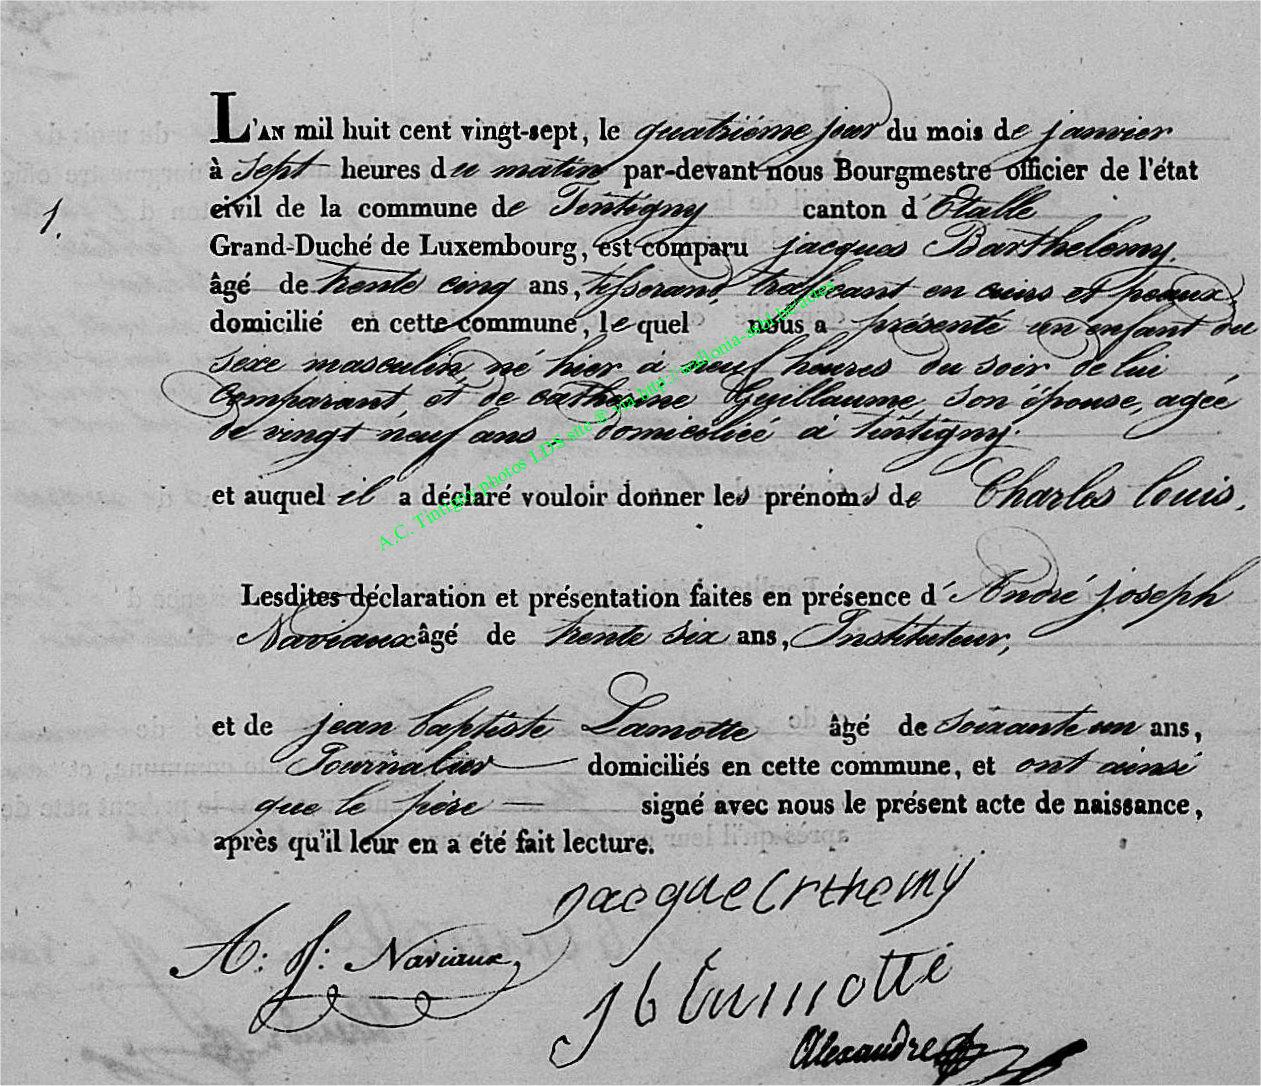 L'AN mil huit cent vingt-sept, le quatrième jour du mois de janvier
à sept heures du matin par-devant nous Bourgmestre officier de l'état
civil de la commune de Tintigny canton d'Etalle
1.
Grand-Duché de Luxembourg, est comparu jacques Barthelemy,
âgé de trente cinq ans, tisserand, traficant en cuirs et peaux,
domicilié en cette commune, lequel nous a présenté un enfant du
sexe masculin, né hier à neuf heures du soir de lui
comparant, et de catherine Guillaume, son épouse, agée
de vingt neuf ans, domiciliée à tintigny.
et auquel il a déclaré vouloir donner les prénoms de Charles Louis.
A.C. Tintigny photos LDS site @ via http://wallonia-asbl.be/actes
Lesdites déclaration et présentation faites en présence d'André joseph
Naviaux âgé de trente six ans, Instituteur,
et de jean baptiste Lamotte âgé de soixante un ans,
Journalier domiciliés en cette commune, et ont ainsi
que le père signé avec nous le présent acte de naissance,
après qu'il leur en a été fait lecture.
A: J: Naviaux
J b Lamotte
Alexandre